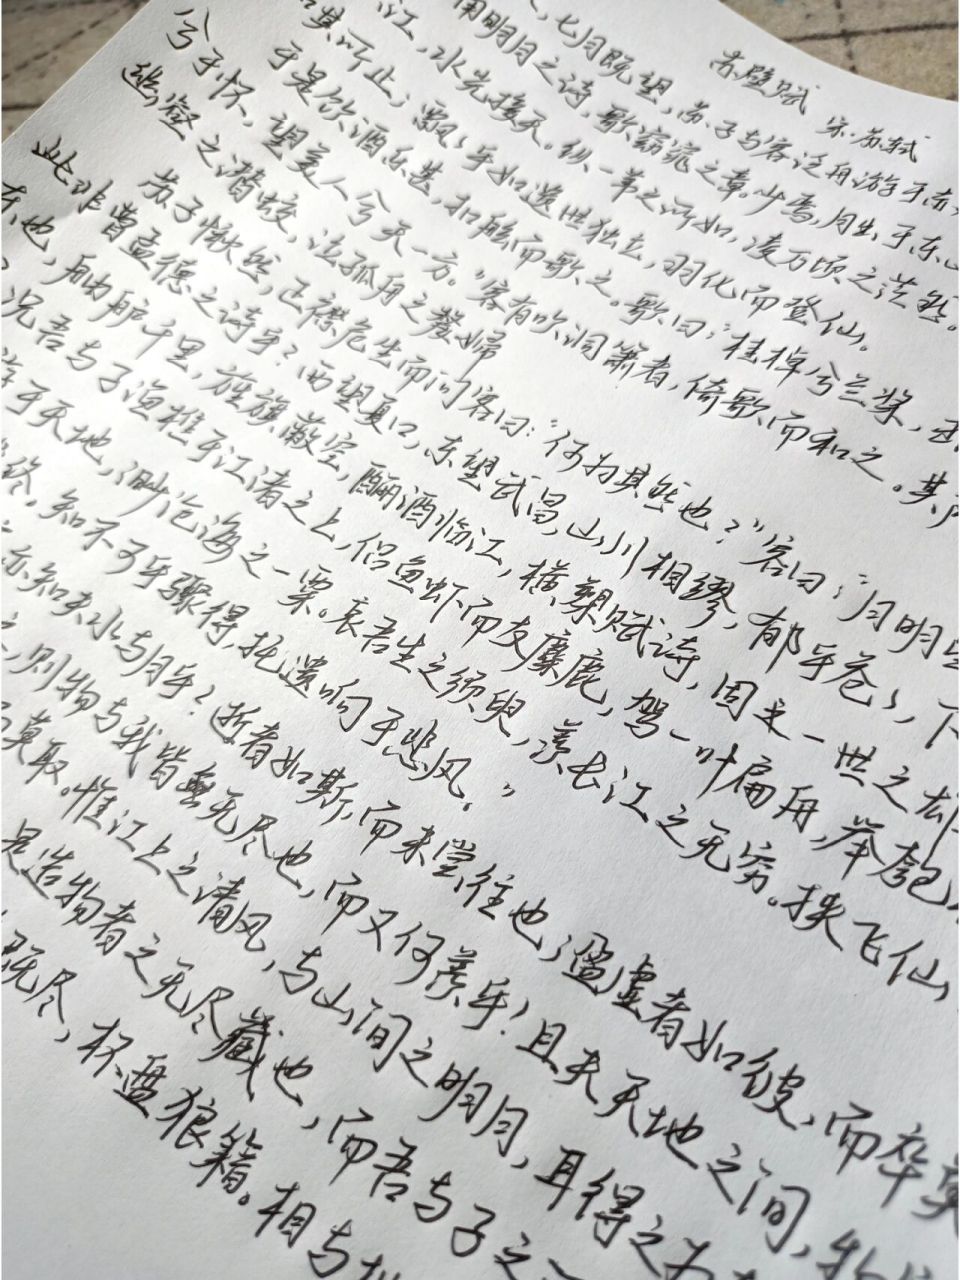 赤壁赋 宋·苏轼
，七月既望，苏子与客泛舟游于赤
明月之诗，歌窈窕之章。少焉，月出于东山
江，水光接天。纵一苇之所如，凌万顷之茫然。
其所止；飘飘乎如遗世独立，羽化而登仙。
于是饮酒乐甚，扣舷而歌之。歌曰：“桂棹兮兰桨，击
兮予怀，望美人兮天一方。”客有吹洞箫者，倚歌而和之。其声
幽壑之潜蛟，泣孤舟之嫠妇
苏子愀然，正襟危坐而问客曰：“何为其然也？”客曰：“月明星
此非曹孟德之诗乎？西望夏口，东望武昌，山川相缪，郁乎苍苍，
东也，舳舻千里，旌旗蔽空，酾酒临江，横槊赋诗，固一世之雄
况吾与子渔樵于江渚之上，侣鱼虾而友麋鹿，驾一叶扁舟，举匏
于天地，渺沧海之一粟。哀吾生之须臾，羡长江之无穷。挟飞仙
终。知不可乎骤得，托遗响于悲风。”
亦知夫水与月乎？逝者如斯，而未尝往也；盈虚者如彼，而卒莫
，则物与我皆无尽也，而又何羡乎！且夫天地之间，物
莫取。惟江上之清风，与山间之明月，耳得之
是造物者之无尽藏也，而吾与子之
既尽，杯盘狼籍。相与